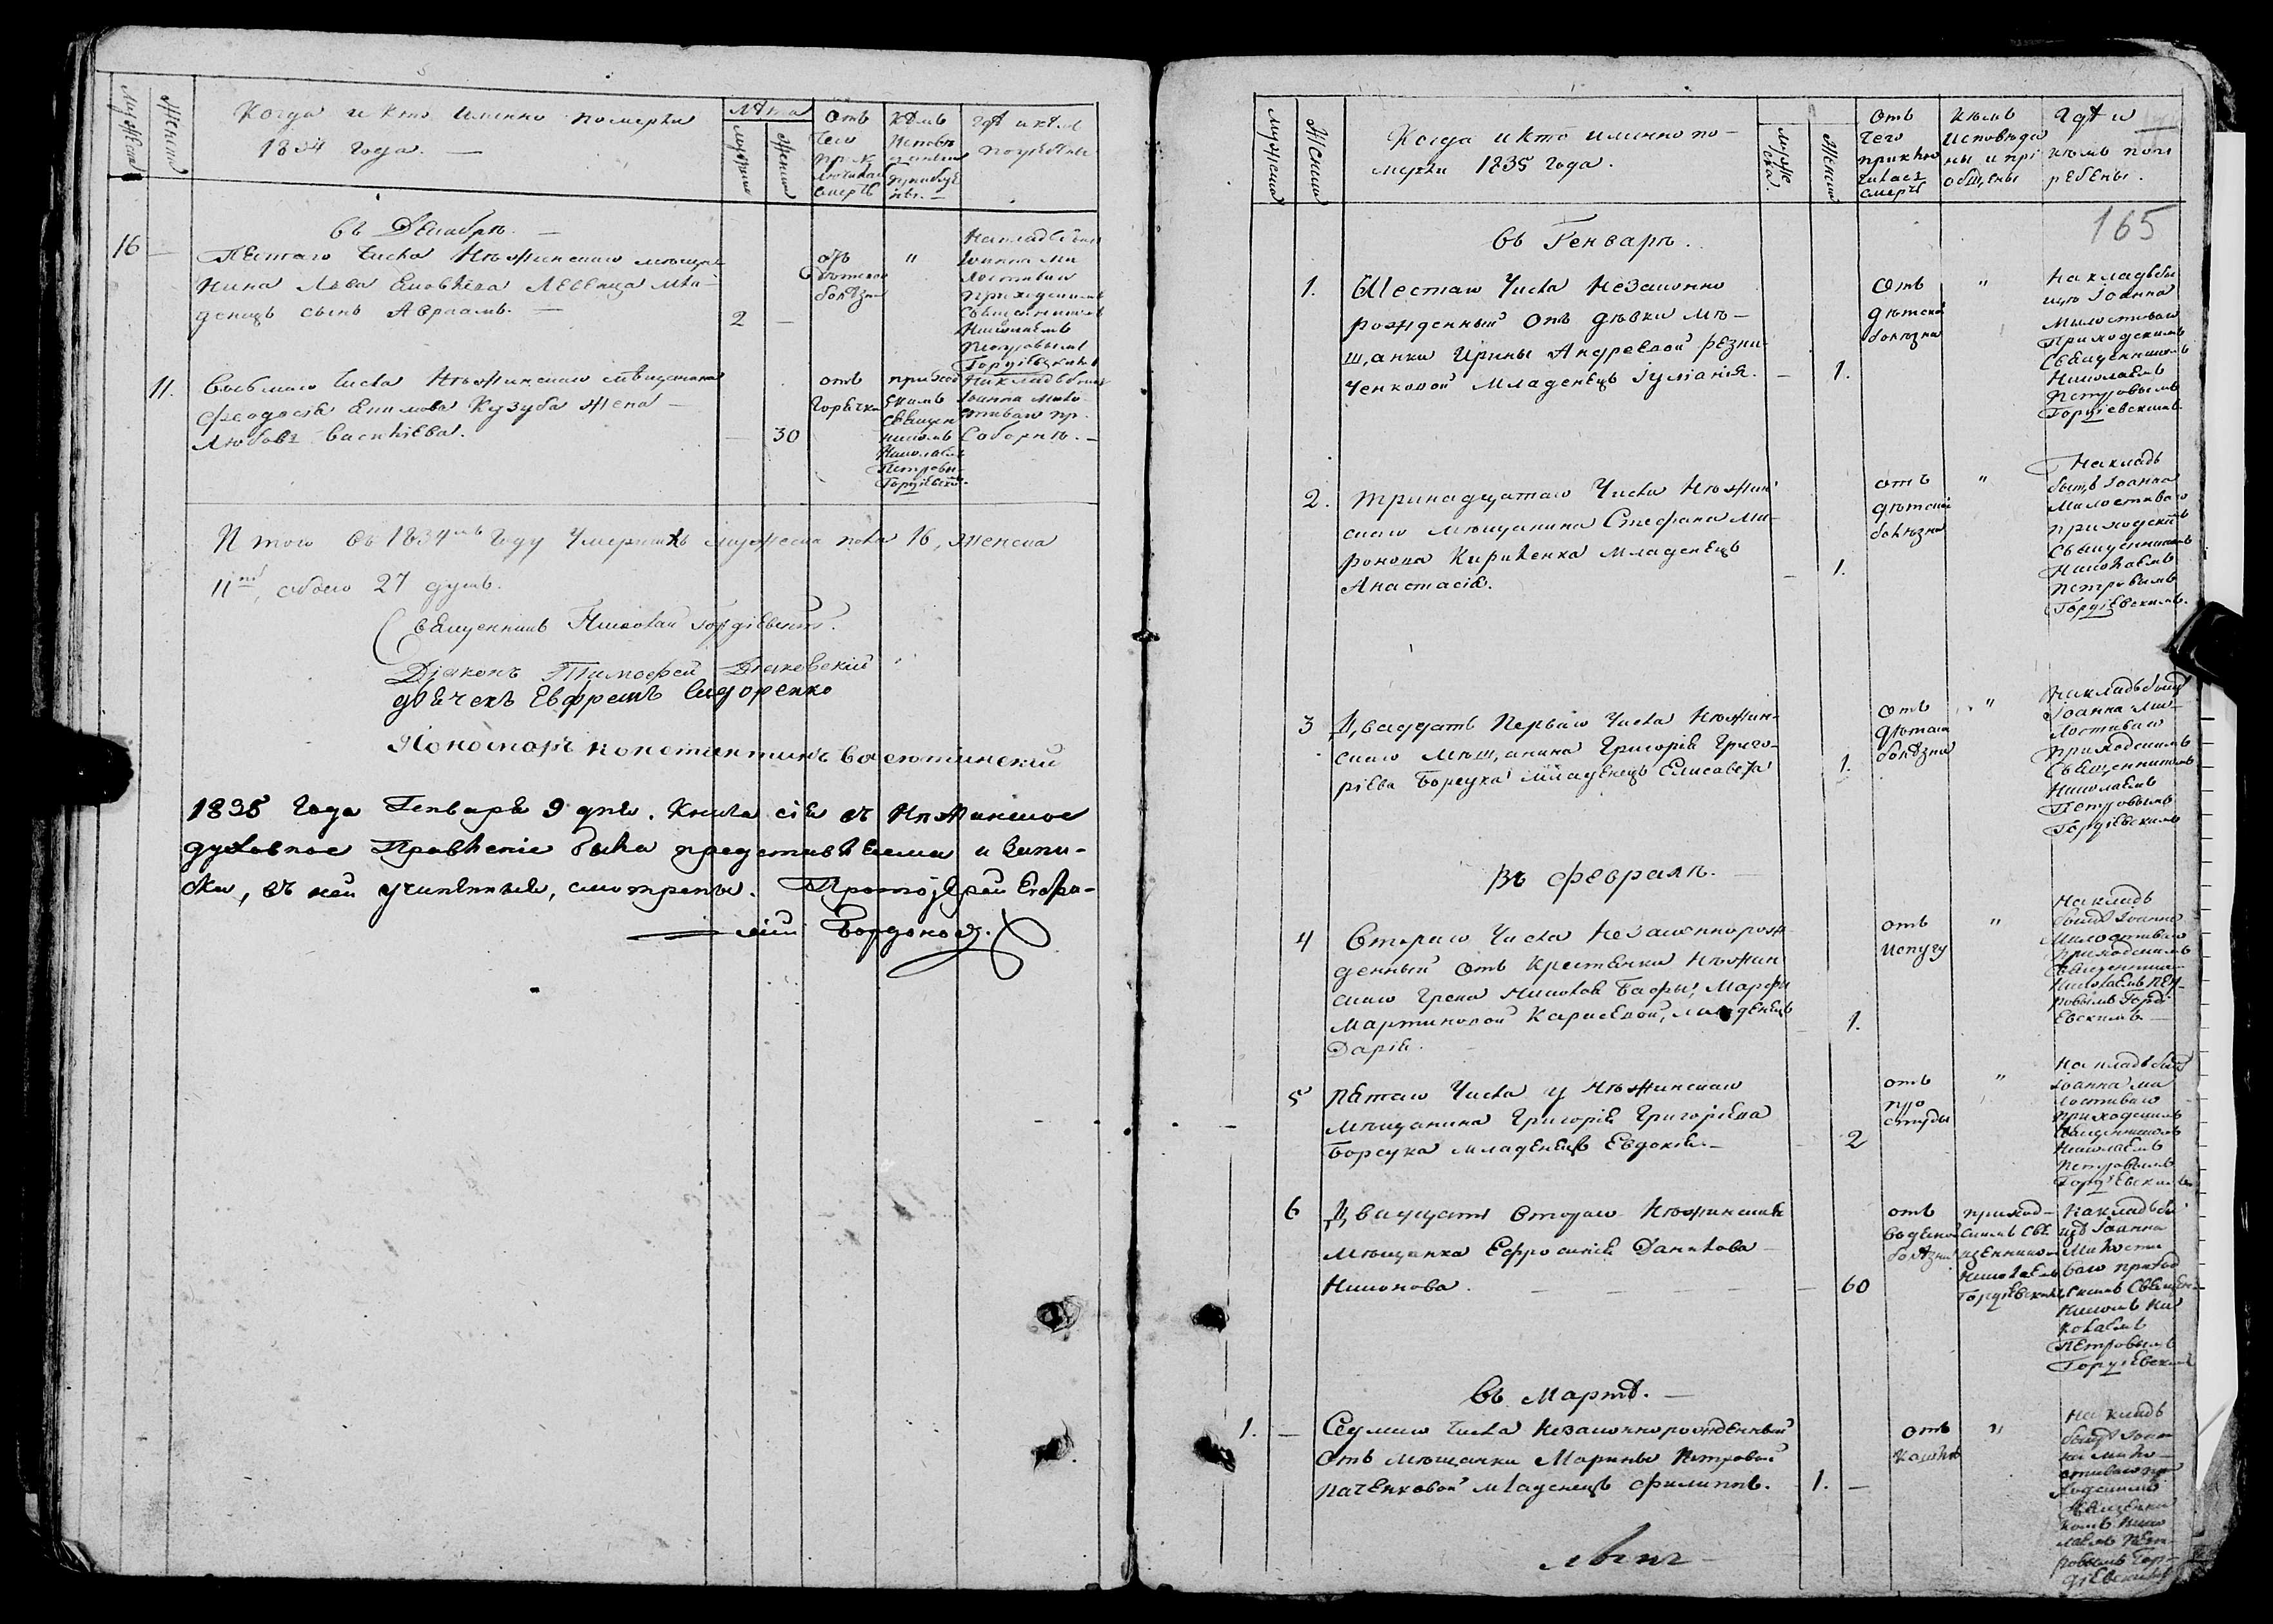 Мужеска
Женска
Когда и кто именно померли
1834 года. —
Лѣта
Мужеска
Женска
Отъ
чего
приклю
чилась
смерть
Кѣмъ
исповѣ
гдѣ и кѣмъ
погребены
въ Декабрѣ. —
16 —
Пятаго числа Нѣжинскаго мѣща-
нина Льва Яковлева Левенца мла-
денецъ сынъ Авраамъ. —
2 —
отъ
дѣтской
болѣзни
"
На кладбищѣ
Іоанна Ми
лостиваго
приходскимъ
священникомъ
Николаемъ
Петровымъ
Гордіевскимъ
11.
Восьмаго числа Нѣжинскаго мѣщанина
Феодосія Якимова Кузуба жена —
Любовь Васильева.
— 30
отъ
горячки
приход
скимъ
священ
никомъ
Николаемъ
Петровы
Гордіевски
На кладбищѣ
Іоанна Мило
стиваго пр.
Соборнѣ. —
Итого въ 1834мъ году умершихъ мужеска пола 16, женска
11ть, обоего 27 душъ.
Священникъ Николай Гордіевскій.
Діяконъ Тимофей
дьячекъ Евфремъ Сидоренко
Пономарь Константинъ
1835 года Генваря 9 дня. Книга сія въ Нѣжинское
духовное Правленіе была представляема и запи-
ски, въ ней учиненные, смотрены. Протоіерей
Мужеска
Женска
Когда и кто именно по-
мерли 1835 года.
Мужес
ска.
Женска
Отъ
чего
приклю
чилась
смерть
Кѣмъ
исповѣда
ны и прі
общены
Гдѣ и
кѣмъ пог
ребены.
165
въ Генварѣ.
1.
Шестаго числа незаконно
рожденный отъ дѣвки мѣ-
щанки Ирины Андреевой Резни
ченковой младенецъ Іуліанія.
— 1.
Отъ
дѣтской
болѣзни
"
На кладби
щѣ Іоанна
Милостиваго
Приходскимъ
Священникомъ
Николаемъ
Петровымъ
Гордіевскимъ
2.
Тринадцатаго числа Нѣжин
скаго мѣщанина Стефана Ми-
ронова Кириленка младенецъ
Анастасія.
— 1.
отъ
дѣтской
болѣзни
"
На клад
бищѣ Іоанна
Милостиваго
приходскимъ
Священникомъ
Николаемъ
Петровымъ
Гордіевскимъ.
3
Двадцать перваго числа Нѣжин-
скаго мѣщанина Григорія Григо-
ріева Борсука младенецъ Елисавета
1.
отъ
дѣтской
болѣзни
"
На кладбищѣ
Іоанна Ми-
лостиваго
приходскимъ
Священникомъ
Николаемъ
Петровымъ
Гордіевскимъ
Въ Февралѣ. —
4
Втораго числа незаконнорож
денный отъ крестьянки Нѣжин
скаго грека Николая Марфы
Мартиновой младенецъ
Дарія.
— 1.
отъ
испугу
"
На клад
бищѣ Іоанна
Милостиваго
приходскимъ
священник
Николаемъ Пет-
ровымъ Горді
евскимъ —
5
Пятаго числа у Нѣжинскаго
мѣщанина Григорія Григоріева
Борсука младенецъ Евдокія. —
— 2
отъ
про
студы
"
На кладбищѣ
Іоанна Ми
лостиваго
приходскимъ
священникомъ
Николаемъ
Петровымъ
Гордіевскимъ
6
Двадцать втораго Нѣжинская
мѣщанка Ефросинія Данилова —
Никонова. —
— 60
отъ
водяной
болѣзни
приход-
скимъ свя
щенником
Николаемъ
Гордіевскимъ
На кладби
щѣ Іоанна
Милости
ваго приход
скимъ священ
никомъ Ни
колаемъ
Петровымъ
Гордіевскимъ
Въ Мартѣ. —
1. —
Седмаго числа незаконнорожденный
отъ мѣщанки Марины Петровой
Паченковой младенецъ Филиппъ.
1. —
отъ
кашля
"
На клад
бищѣ Іоан
на Мило
стиваго при
ходскимъ
священни
комъ Нико
лаемъ Пет-
ровымъ Гор-
діевскимъ